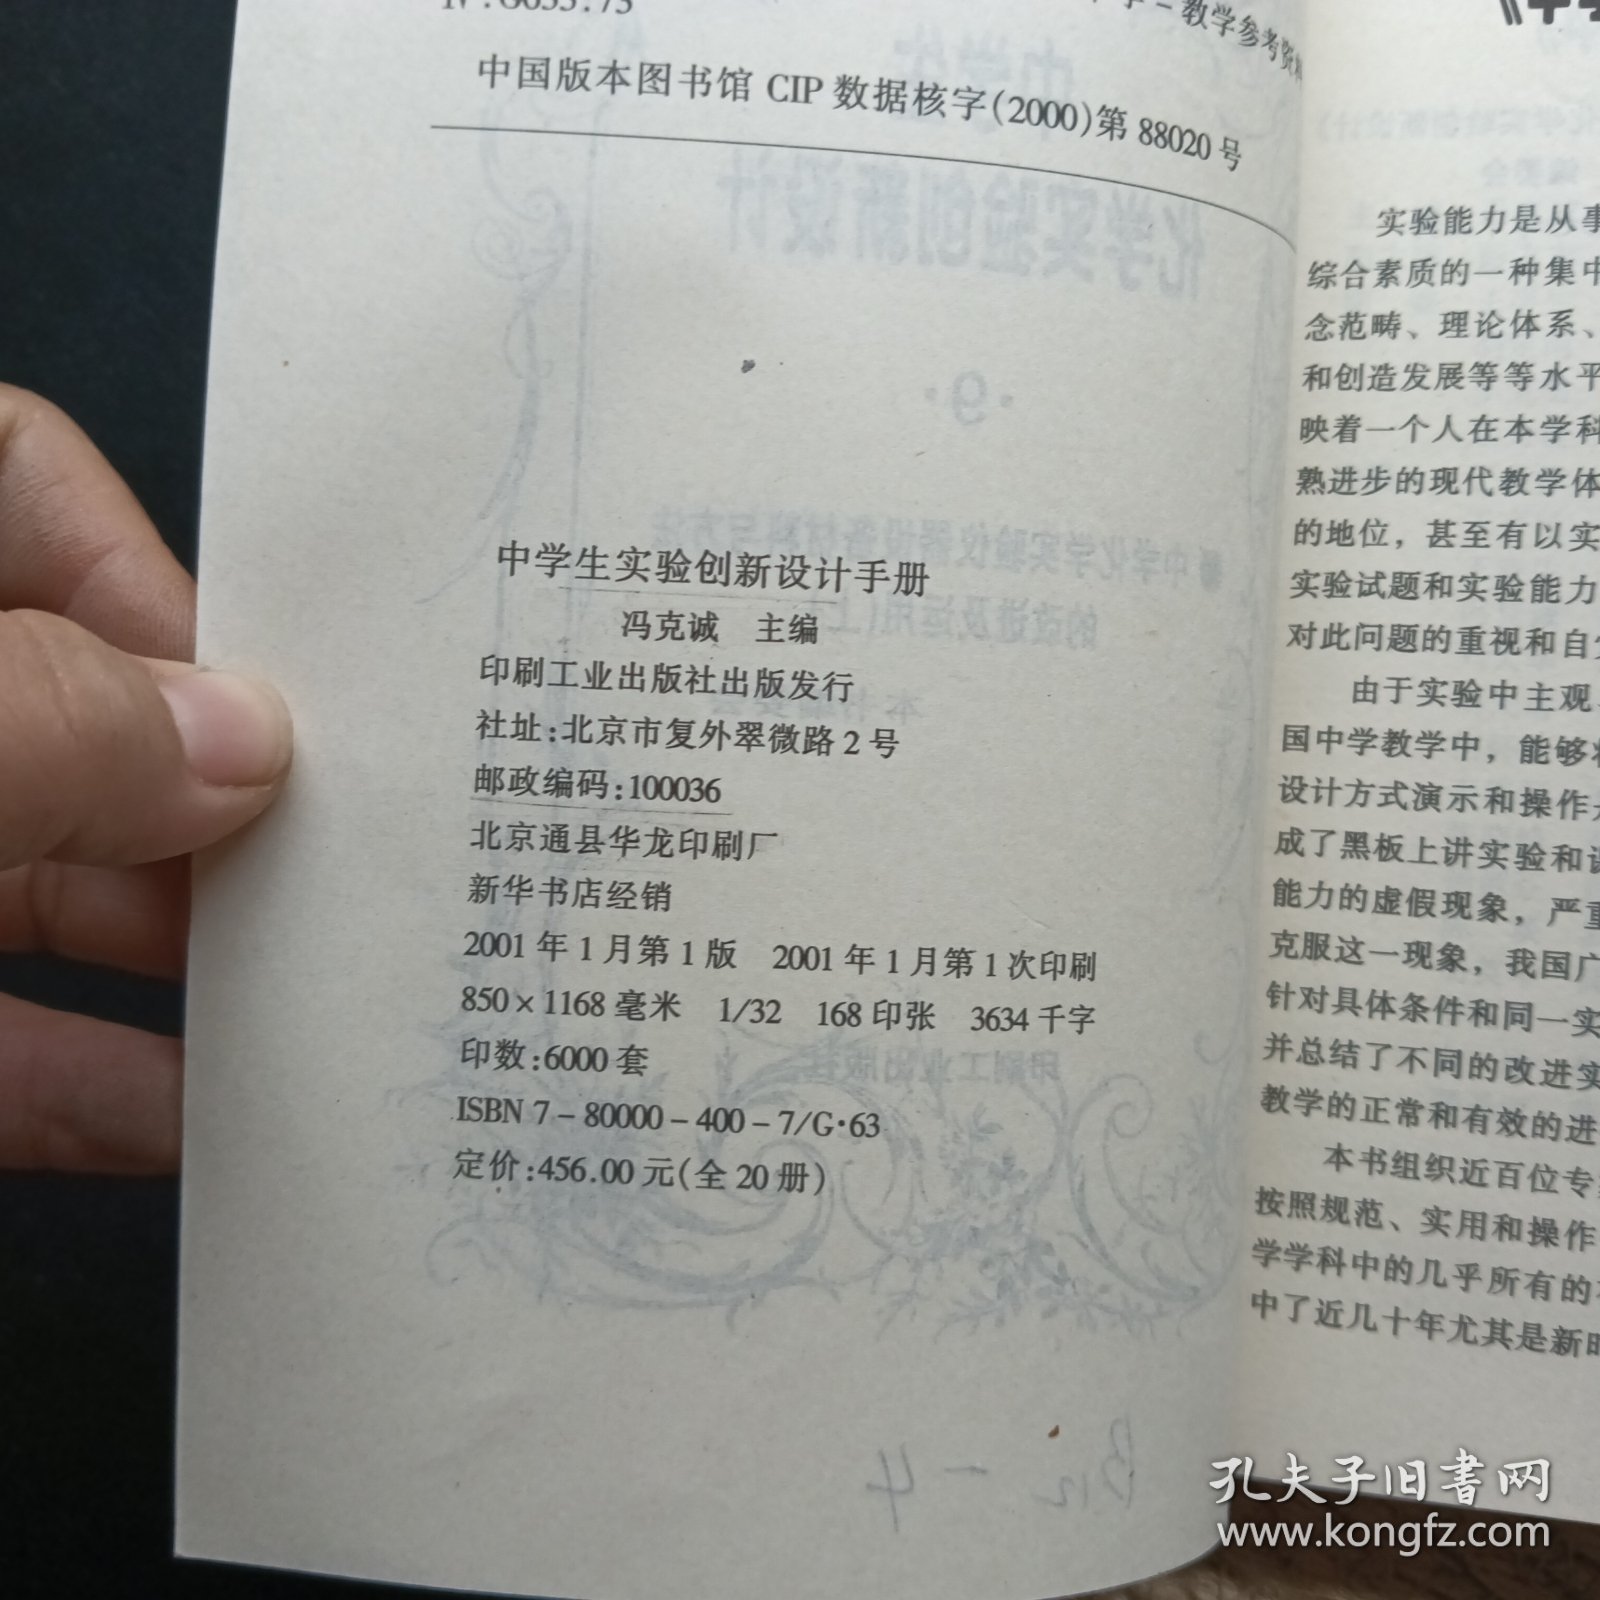 Ⅳ.G633.73
-教学参考资料
中国版本图书馆 CIP 数据核字(2000)第 88020 号
中学生实验创新设计手册
冯克诚 主编
印刷工业出版社出版发行
社址:北京市复外翠微路 2 号
邮政编码:100036
北京通县华龙印刷厂
新华书店经销
2001 年 1 月第 1 版 2001 年 1 月第 1 次印刷
850×1168 毫米 1/32 168 印张 3634 千字
印数:6000 套
ISBN 7-80000-400-7/G·63
定价:456.00 元(全 20 册)
实验能力是从事
综合素质的一种集中
念范畴、理论体系、
和创造发展等等水平
映着一个人在本学科
熟进步的现代教学体
的地位，甚至有以实
实验试题和实验能力
对此问题的重视和自
由于实验中主观
国中学教学中，能够
设计方式演示和操作
成了黑板上讲实验和
能力的虚假现象，严重
克服这一现象，我国广
针对具体条件和同一实
并总结了不同的改进实
教学的正常和有效的进
本书组织近百位专
按照规范、实用和操作
学学科中的几乎所有的
中了近几十年尤其是新时
孔夫子旧书网
www.kongfz.com